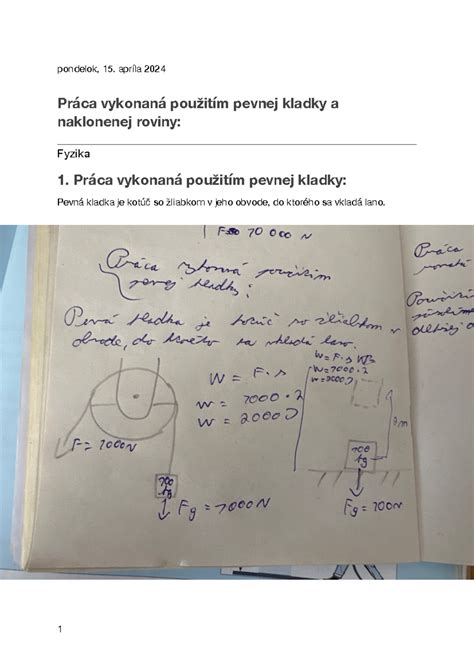 pondelok, 15. apríla 2024
Práca vykonaná použitím pevnej kladky a
naklonenej roviny:
Fyzika
1. Práca vykonaná použitím pevnej kladky:
Pevná kladka je kotúč so žliabkom v jeho obvode, do ktorého sa vkladá lano.
10 000 N
Práca
pevnej kladky:
Pevná kladka je kotúč so žliabkom v
obvode, do ktorého sa vkladá lano.
W = F · s
W = 1000 · 2
W = 2000 J
W = F · s
W = 1000 · 2
W = 2000 J
2m
F = 1000N
100
kg
Fg = 1000N
100
kg
Fg = 100N
Práca
1